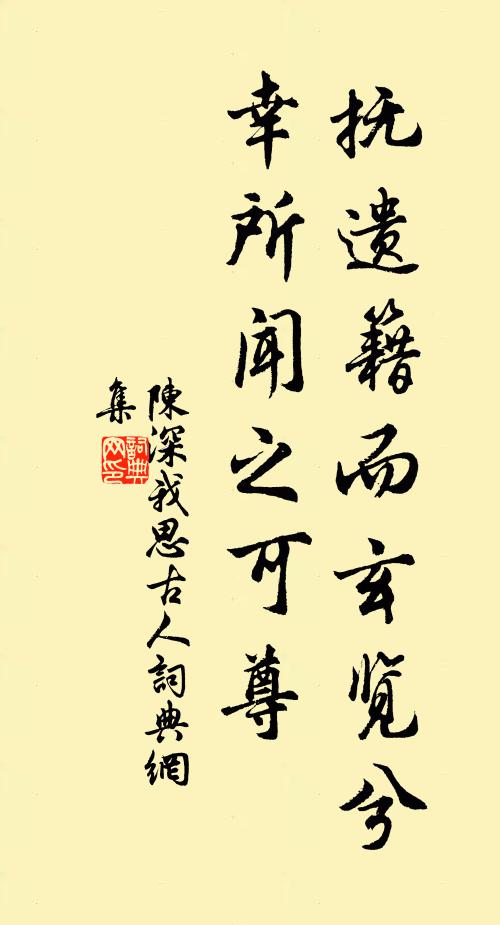 抚遗籍而玄览兮
幸所闻之可尊
陳深我思古人詞典網
集
詞典
网印